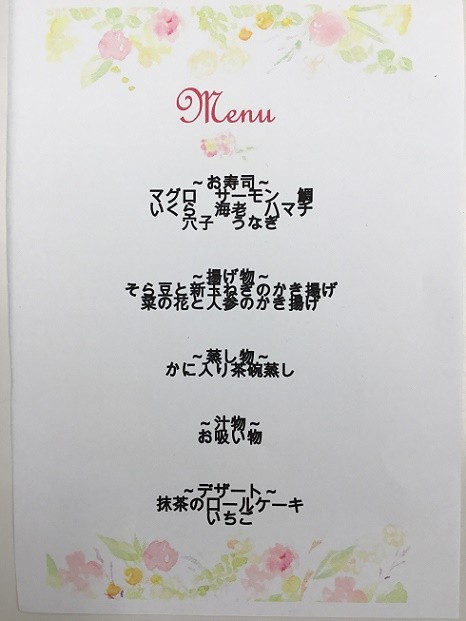 Menu
～お寿司～
マグロ　サーモン　鯛
いくら　海老　ハマチ
穴子　うなぎ
～揚げ物～
そら豆と新玉ねぎのかき揚げ
菜の花と人参のかき揚げ
～蒸し物～
かに入り茶碗蒸し
～汁物～
お吸い物
～デザート～
抹茶のロールケーキ
いちご